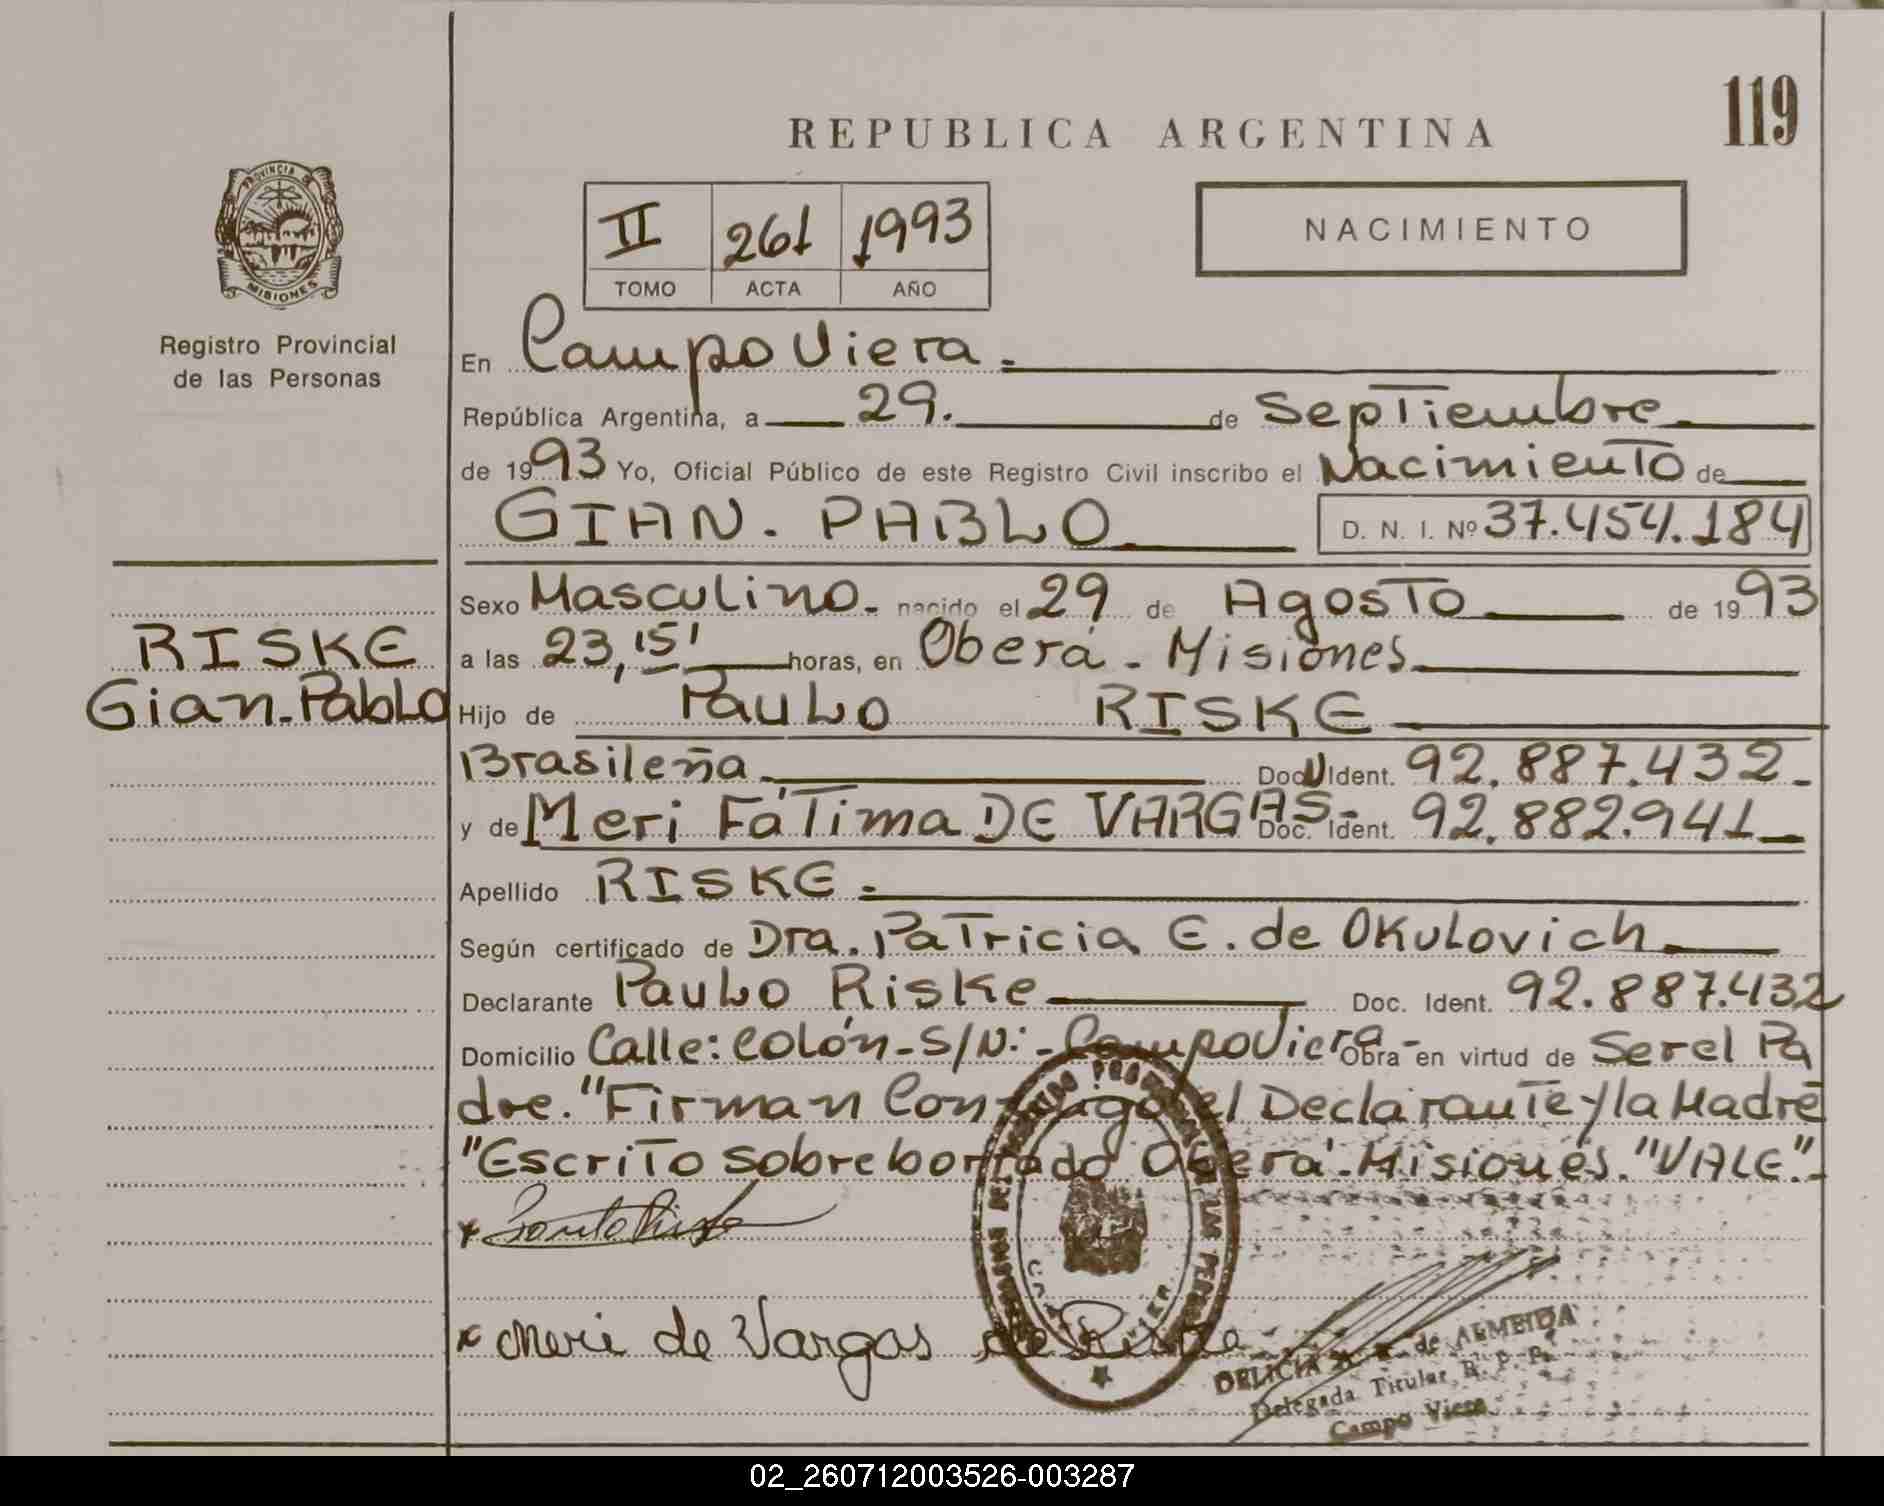 119
REPUBLICA ARGENTINA
NACIMIENTO
II 261 1993
TOMO ACTA AÑO
PROVINCIA DE MISIONES
Registro Provincial
de las Personas
En Campo Viera.
República Argentina, a 29. de Septiembre
de 1993 Yo, Oficial Público de este Registro Civil inscribo el Nacimiento de
GIAN. PABLO D. N. I. Nº 37.454.184
Sexo Masculino. nacido el 29 de Agosto de 1993
RISKE
a las 23,15' horas, en Oberá - Misiones
Gian.Pablo
Hijo de Paulo RISKE
Brasileña Doc. Ident. 92.887.432.
y de Meri Fátima DE VARGAS- Doc. Ident. 92.882.941
Apellido RISKE.
Según certificado de Dra. Patricia E. de Okulovich
Declarante Paulo Riske Doc. Ident. 92.887.432
Domicilio Calle: Colón-S/N:-Campo Viera- Obra en virtud de Ser el Pa
dre. "Firman Conmigo el Declarante y la Madre
"Escrito sobre borrado Oberá-Misiones."VALE".-
x Paulo Riske
x Meri de Vargas de Riske
DELICIA de ALMEIDA
Delegada Titular R. P. P.
Campo Viera
02_260712003526-003287